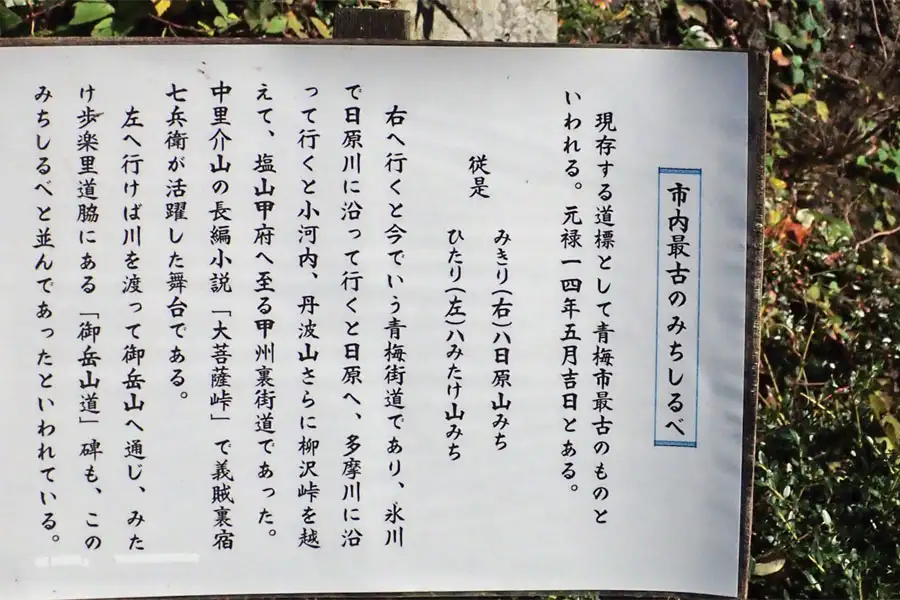 市内最古のみちしるべ
現存する道標として青梅市最古のものと
いわれる。元禄一四年五月吉日とある。
従是
みきり(右)ハ日原山みち
ひたり(左)ハみたけ山みち
右へ行くと今でいう青梅街道であり、氷川
で日原川に沿って行くと日原へ、多摩川に沿
って行くと小河内、丹波山さらに柳沢峠を越
えて、塩山甲府へ至る甲州裏街道であった。
中里介山の長編小説「大菩薩峠」で義賊裏宿
七兵衛が活躍した舞台である。
左へ行けば川を渡って御岳山へ通じ、みた
け歩楽里道脇にある「御岳山道」碑も、この
みちしるべと並んであったといわれている。